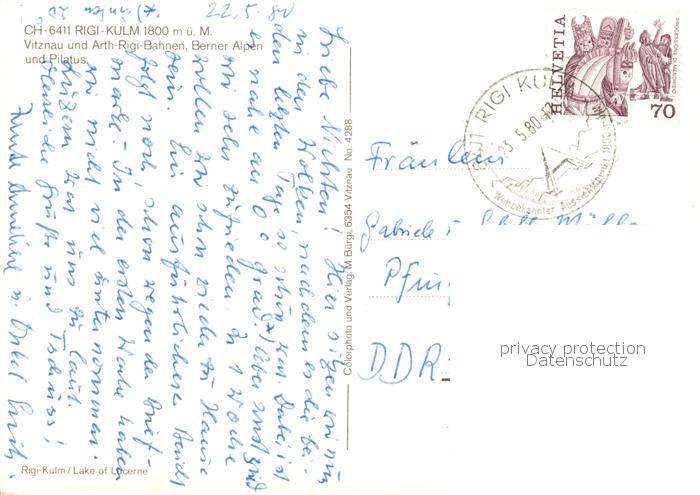 CH-6411 RIGI-KULM 1800 m ü. M.
Vitznau und Arth-Rigi-Bahnen, Berner Alpen
und Pilatus.
22.5.80
Liebe Nichten! Hier sitzen wir nun
in den Wolken, nachdem es die bei-
den letzten Tage so schön war. Dabei ist
es nahe an 0° Grad.*) Aber sonst sind
wir sehr zufrieden. In 1 Woche
wollen wir schon wieder zu Hause
sein. Ein ausführlicher Bericht
folgt noch, schon wegen der Brief-
marke - In der ersten Woche haben
wir nicht viel unternommen.
Luzern war uns zu laut.
Herzliche Grüße und Tschüss!
Tante Anneliese u. Onkel Erich.
Colorphoto und Verlag: M. Bürgi, 6354 Vitznau No. 4288
HELVETIA
PROCESSIONE DI MENDRISIO
70
6411 RIGI KULM
23.5.80
Weltbekannter Aussichtspunkt 1800 m
Fräulein
Gabriele
Pfin
DDR
privacy protection
Datenschutz
Rigi-Kulm / Lake of Lucerne